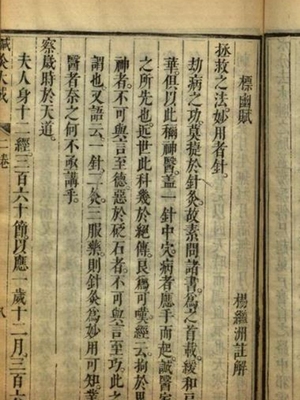 標幽賦 楊繼洲註解
拯救之法妙用者針。
劫病之功。莫捷於針灸。故素問諸書。為之首載。緩和
華。俱以此稱神醫。蓋一針中穴。病者應手而起。誠醫家
之所先也。近世此科幾於絕傳。良為可嘆。經云。拘於鬼
神者。不可與言至德。惡於砭石者。不可與言至巧。此之
謂也。又語云。一針。二灸。三服藥。則針灸為妙用可知。業
醫者奈之何不亟講乎。
察歲時於天道。
夫人身十二經。三百六十節。以應一歲十二月。三百六
鍼灸大成 二卷 八